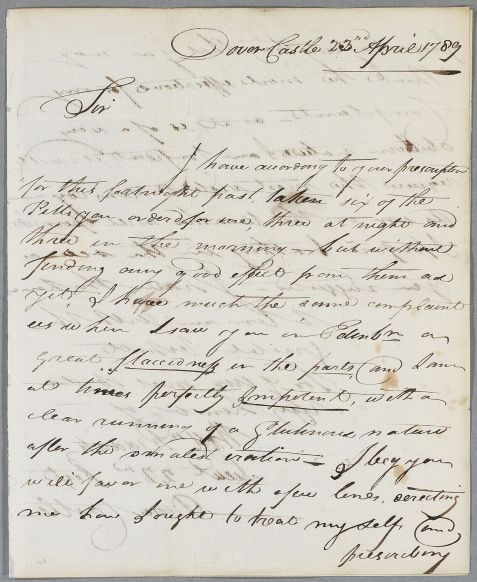 Dover Castle 22nd April 1789
Sir
I have according to your prescription
for this fortnight past taken six of the
Pills you ordered for me, three at night and
three in the morning but without
finding any good effect from them as
yet, I have much the same complaint
as when I saw you in Edinbr. a
great flaccidness in the parts, and I am
at times perfectly Impotent, with a
clear running of a Glutinous nature
after the smalest erection – I beg you
will favor me with a few lines, directing
me how I ought to treat my self and
prescribing